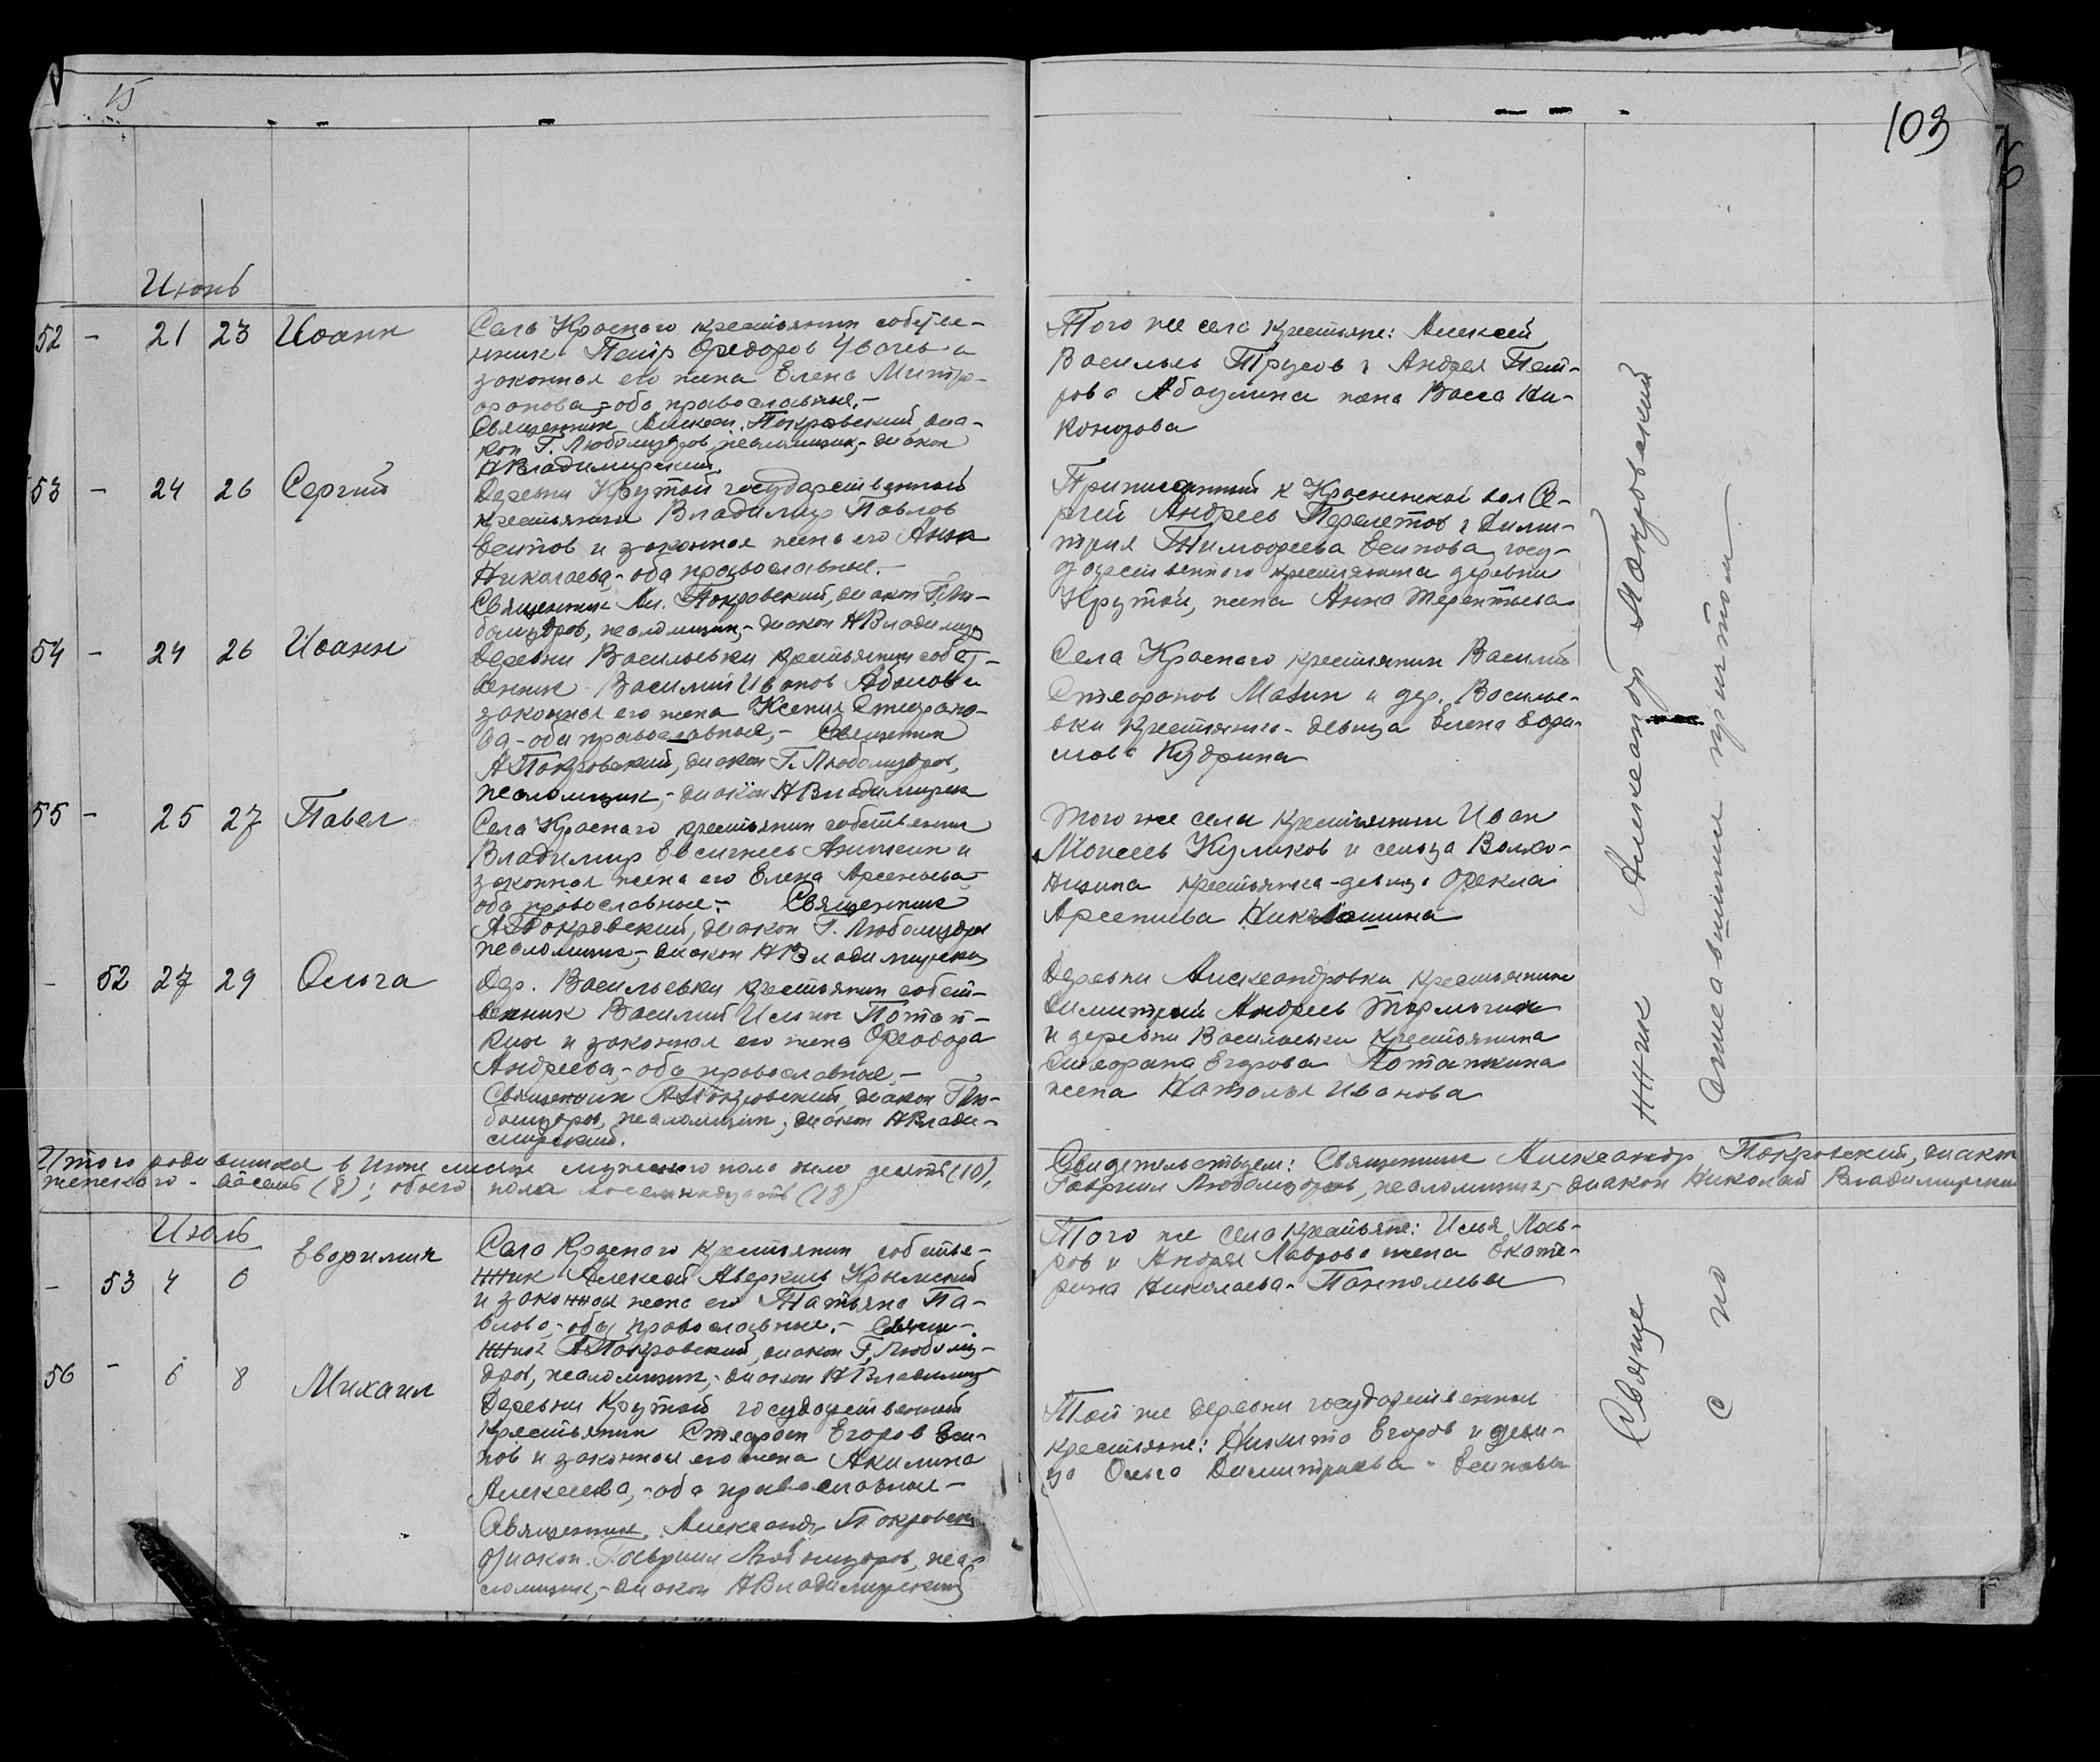 15
103
Июнь
52 - 21 23 Иоанн
Села Краснаго крестьянин собстве-
нник Петр Федоров и
законная его жена Елена Митро-
фанова, - оба православные. -
Священник Алексан. Покровский, диа-
кон Г. Любомудров, псаломщик, - диакон
Н Владимирский.
Того же села крестьяне: Алексей
Васильев Трусов и Андрея Пет-
рова жена Васса Ни-
53 - 24 26 Сергий
Деревни Крутой государственный
крестьянин Владимир Павлов
Есипов и законная жена его Анна
Николаева, - оба православные. -
Священник Ал. Покровский, диакон Г. Лю-
бомудров, псаломщик, - диакон Н Владимир
Приписанный к Красненской вол Се-
ргей Андреев Перелетов и Дими-
трия Тимофеева Есипова, госу-
дарственного крестьянина деревни
Крутой, жена Анна Терентьева
54 - 24 26 Иоанн
Деревни Васильевки крестьянин собст-
венник Василий Иванов и
законная его жена Ксения Стефано-
ва - оба православные, - Священник
А Покровский, диакон Г. Любомудров,
псаломщик, - диакон Н Владимирск
Села Краснаго крестьянин Василий
Стефанов Мазин и дер. Василье-
вки крестьянка - девица Елена Ефи-
мова Кудрина
55 - 25 27 Павел
Села Краснаго крестьянин собственник
Владимир Евсигнеев и
законная жена его Елена Арсеньева,
оба православные. - Священник
А Покровский, диакон Г. Любомудров
псаломщик, - диакон Н Владимирский
Того же села крестьянин Иван
Моисеев Куликов и сельца
крестьянка - девица Фекла
Арсеньева
- 52 27 29 Ольга
Дер. Васильевки крестьянин собст-
венник Василий Ильин Потап-
кин и законная его жена Феодора
Андреева, - оба православные, -
Священник А Покровский, диакон Г Лю-
бомудров, псаломщик, диакон Н Влади-
мирский.
Деревни Александровки крестьянин
Димитрий Андреев
и деревни Васильевки крестьянина
Стефана Егорова Потапкина
жена Наталья Иванова
Итого родившихся в Июне месяце мужескаго пола было десять (10),
женскаго - восемь (8); обоего пола восемнадцать (18)
Свидетельствуем: Священник Александр Покровский, диакон
Гавриил Любомудров, псаломщик, - диакон Николай Владимирский
Июль
- 53 4 6 Евфимия
Села Краснаго крестьянин собстве-
нник Алексей Аверкиев Крымский
и законная жена его Татьяна Па-
влова, - оба православные. - Священ-
ник А Покровский, диакон Г. Любому-
дров, псаломщик, - диакон Н Владимир
Того же села крестьяне: Илья Лав-
ров и Андрея Лаврова жена Екате-
рина Николаева -
56 - 6 8 Михаил
Деревни Крутой государственный
крестьянин Стефан Егоров Еси-
пов и законная его жена Акилина
Алексеева, - оба православные -
Священник Александр Покровский
диакон Гавриил Любомудров, пса-
ломщик, - диакон Н Владимирский
Той же деревни государственные
крестьяне: Никита Егоров и деви-
ца Ольга Димитриева - Есиповы
Священник Александр Покровский
с по ставшим притом